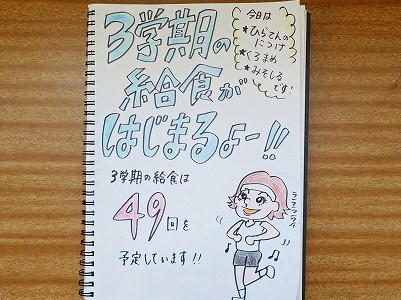 3学期の
給食が
はじまるよー!!
今日は
★ひらてんの
につけ
★くろまめ
★みそしる
です!
3学期の給食は
49回を
予定しています!!